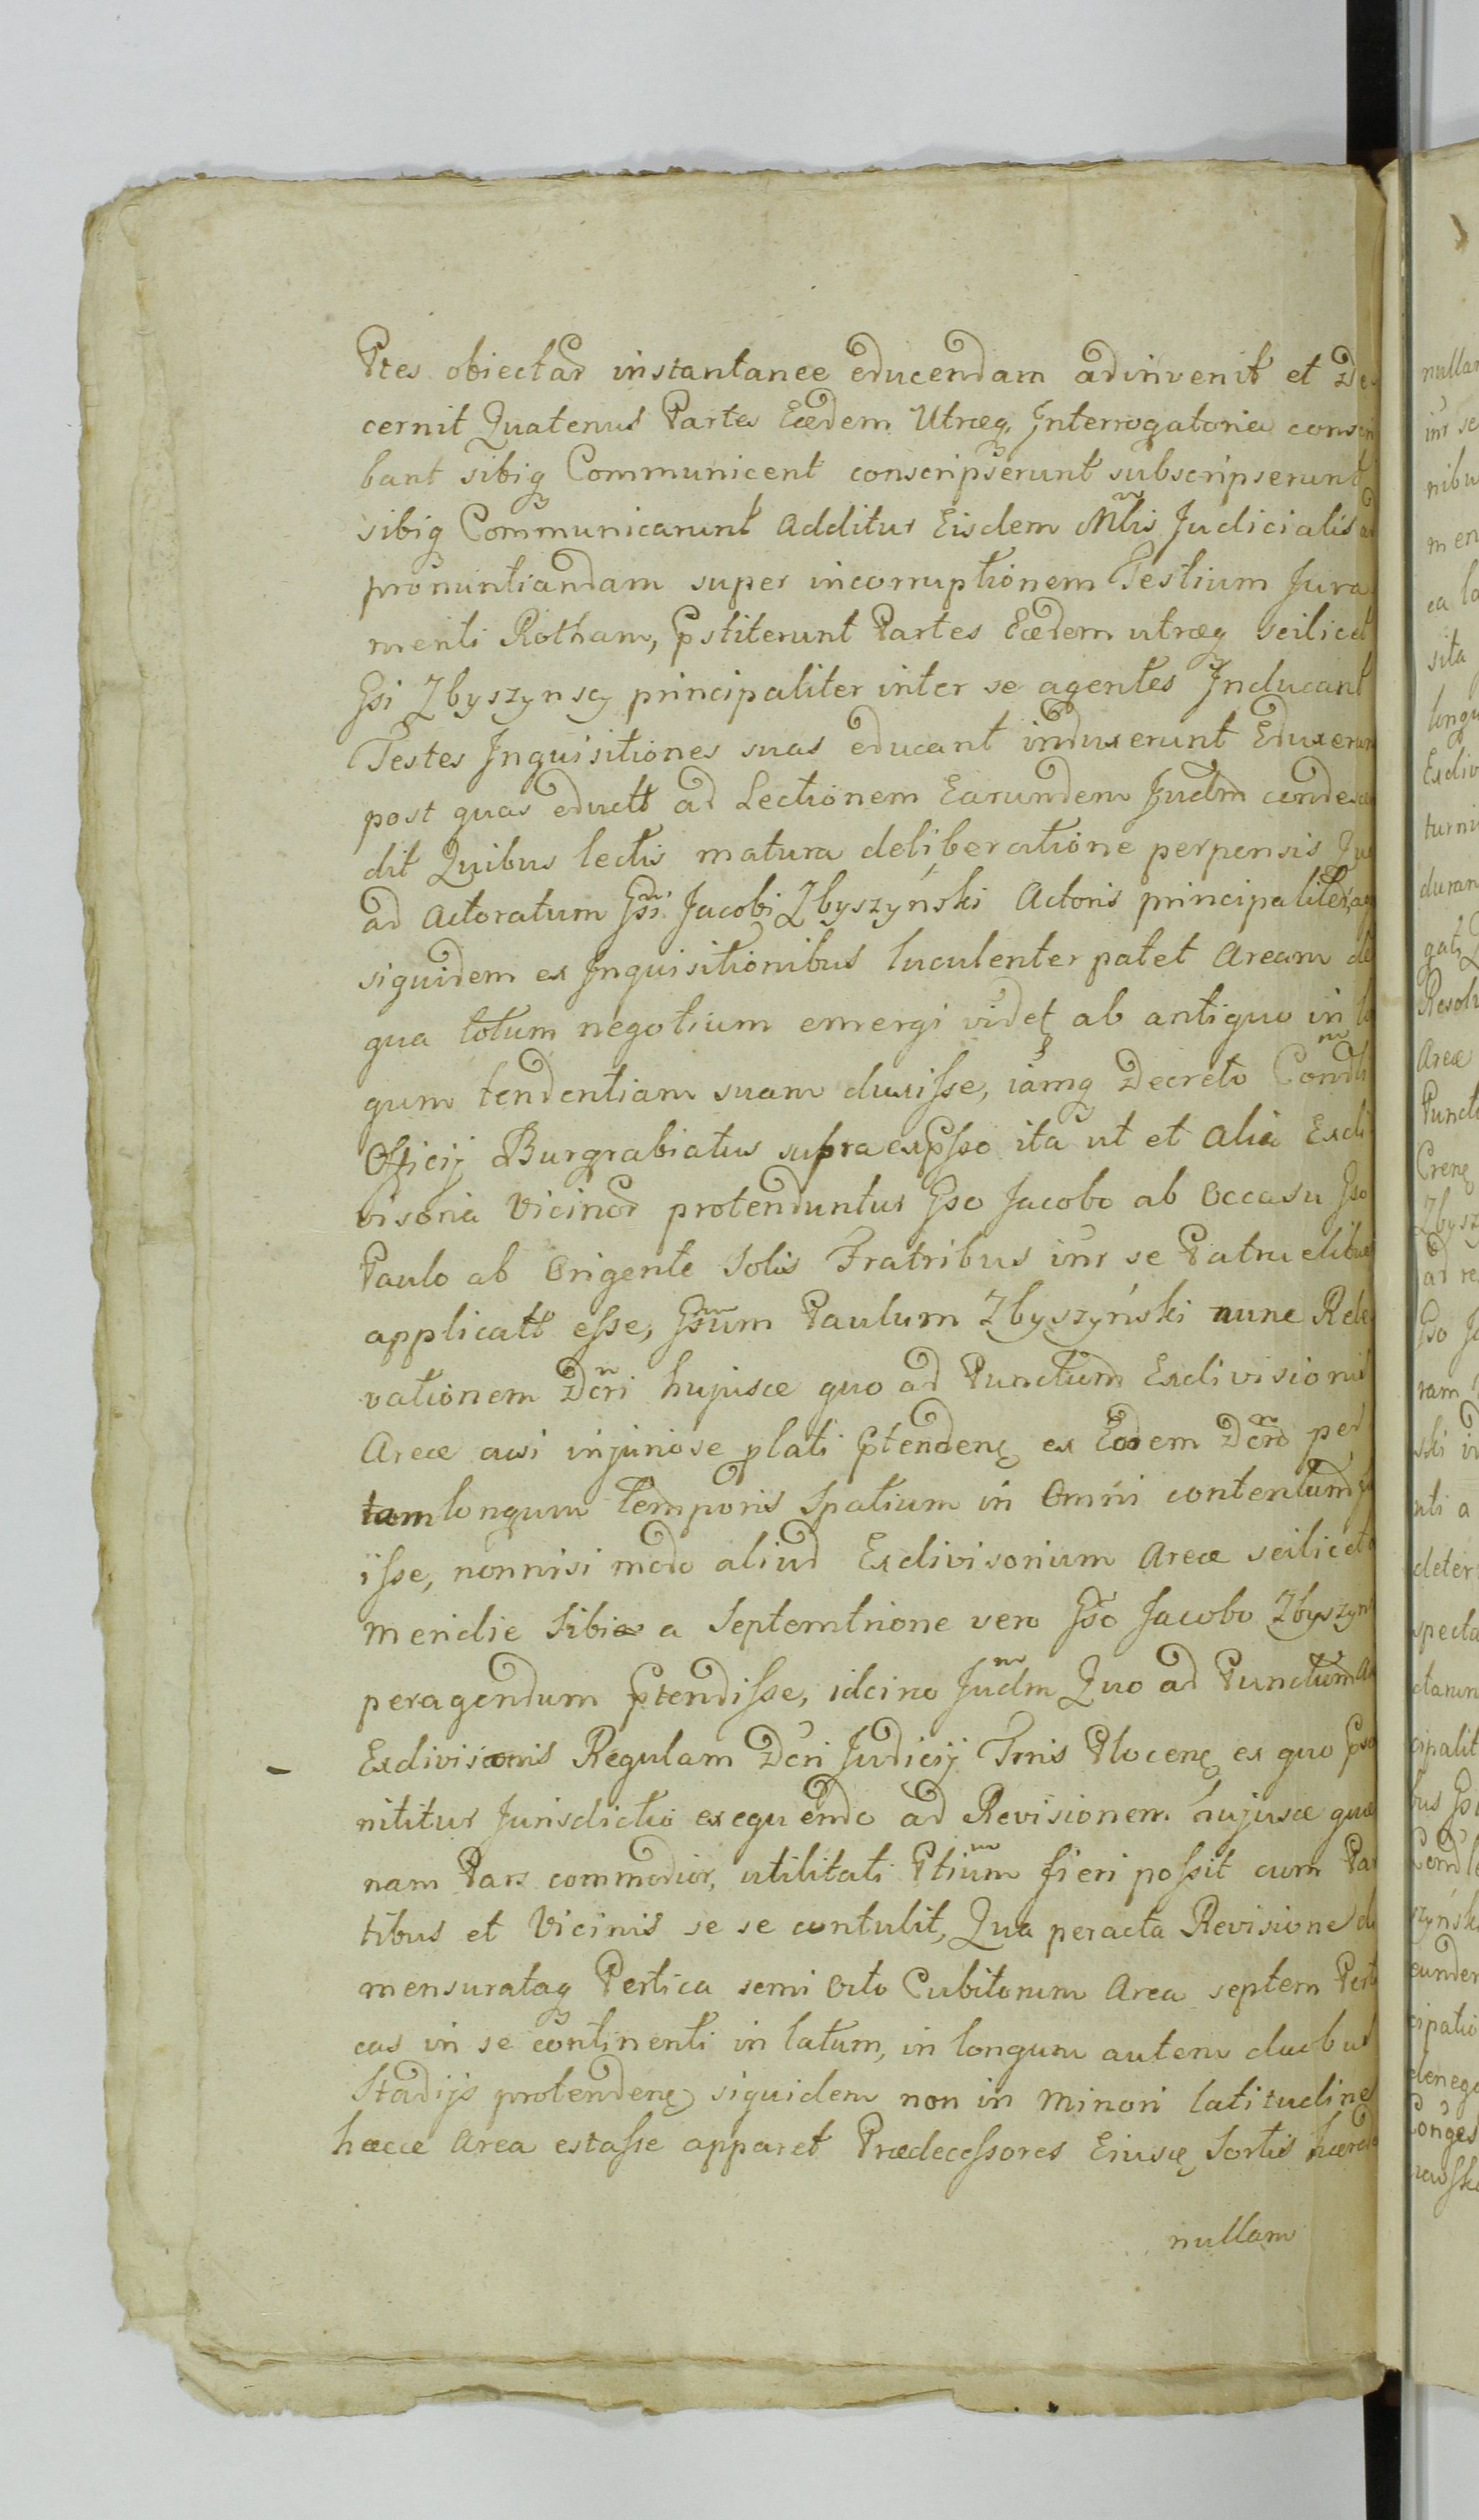 Ptes obiectar instantanee educendam adinvenit et De
cernit Quatenus Partes Eædem Utræq Interrogatoria conscri
bant sibiq Communicent conscripserunt subscripserunt
sibiq Communicarunt additur Eisdem Mlis Judicialis ad
pronuntiandam super incorruptionem Testium Jura
menti Rotham, Pstiterunt Partes Eædem utræq scilicet
Gsi Zbyszynscy principaliter inter se agentes Inducant
Testes Inquisitiones suas educant induxerunt Eduxerun
post quas eductt ad Lectionem Earundem Judm condescen
dit Quibus lectis matura deliberatione perpensis Quo
ad Actoratum Gsi Jacobi Zbyszyński Actoris principaliter, ag
siquidem ex Inquisitionibus luculenter patet Aream de
qua totum negotium emergi videt ab antiquo in lo
gum tendentiam suam duxisse, iamq Decreto Condli
Officij Burgrabiatus supra expsso ita ut et alia Exdi
visoria Vicinor protenduntur Gso Jacobo ab Occasu Gso
Paulo ab Origente Solis Fratribus inr se Patruelibus
applicatt esse, Gsum Paulum Zbyszyński nunc Rele
vationem Dcri hujusce quo ad Punctum Exdivisionis
Areæ ausi injuriose plati Ptendenę ex Eodem Dcro per
tam longum temporis Spatium in Omni contentum fu
isse, nonnisi modo aliud Exdivisorium Areæ scilicet a
Meridie Sibi a Septemtrione vero Gso Jacobo Zbyszyns
peragendum Ptendisse, idcirco Judm Quo ad Punctum Ar
Exdivisionis Regulam Dcri Judicij Tris Plocenę ex quo Pso
nititur Jurisdictio exequendo ad Revisionem hujusce quæ
nam Pars commodior, utilitati Ptium fieri possit cum Par
tibus et Vicinis se se contulit, Qua peracta Revisione di
mensurataq Pertica semi Octo Cubitorum Area septem Perti
cas in se continenti in latum, in longum autem duobus
Stadijs protendenę siquidem non in Minori latitudine
hæcce Area extasse apparet Prædecessores Eiuscę Sortis hæred
nullam